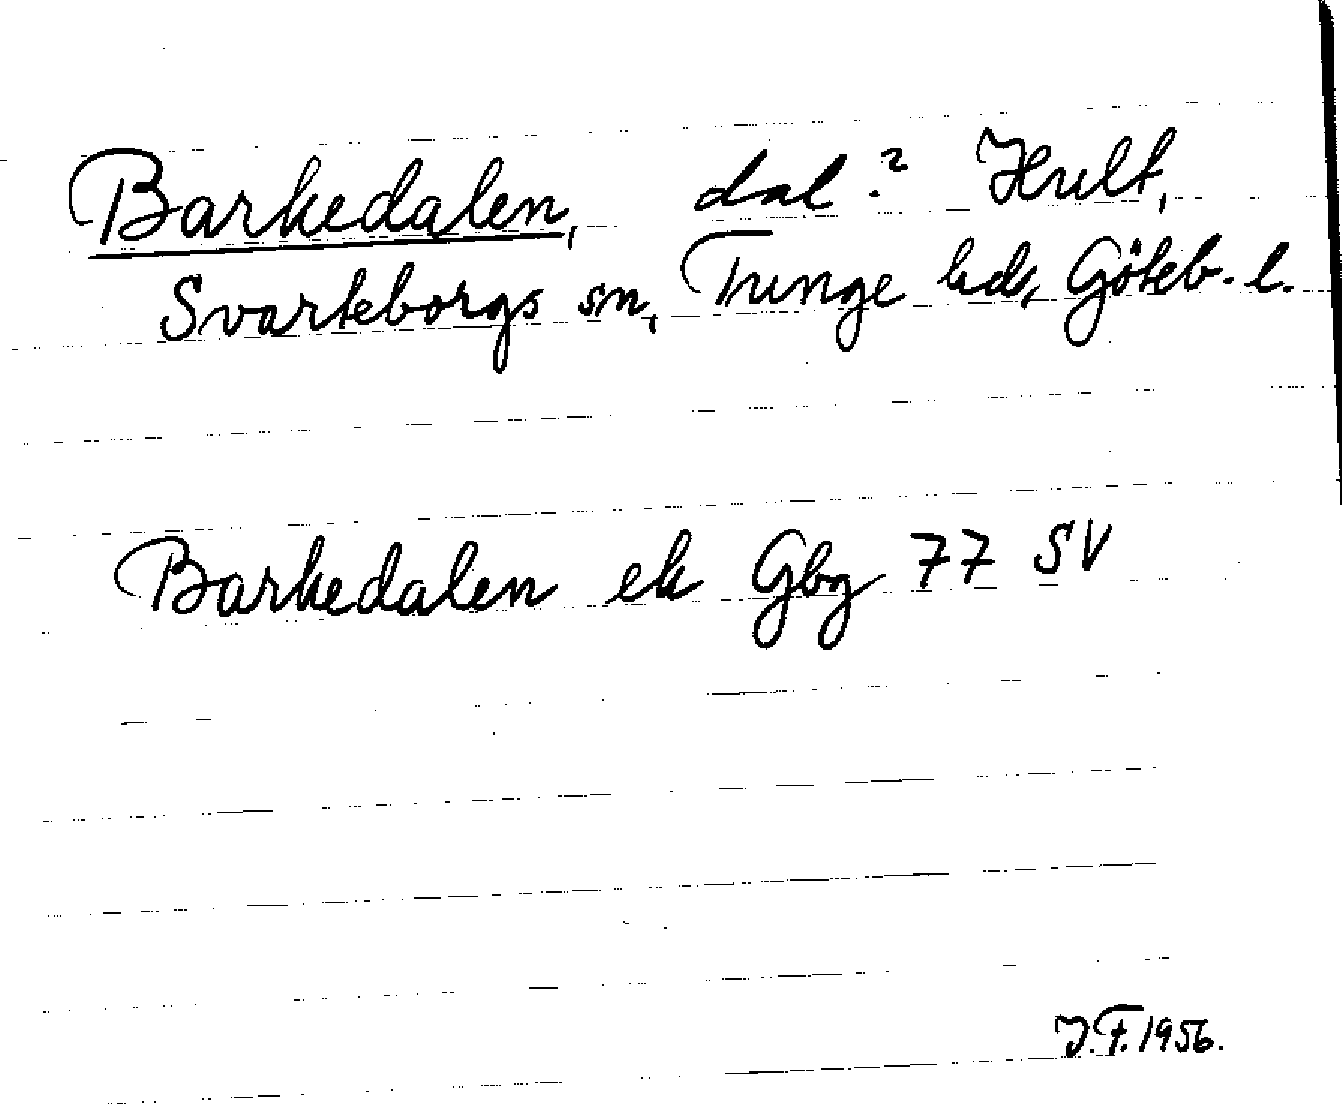 Barkedalen, dal? Hult,
Svarteborgs sn, Tunge hd, Göteb. l.
Barkedalen ek Gbg 77 SV
J.F. 1956.